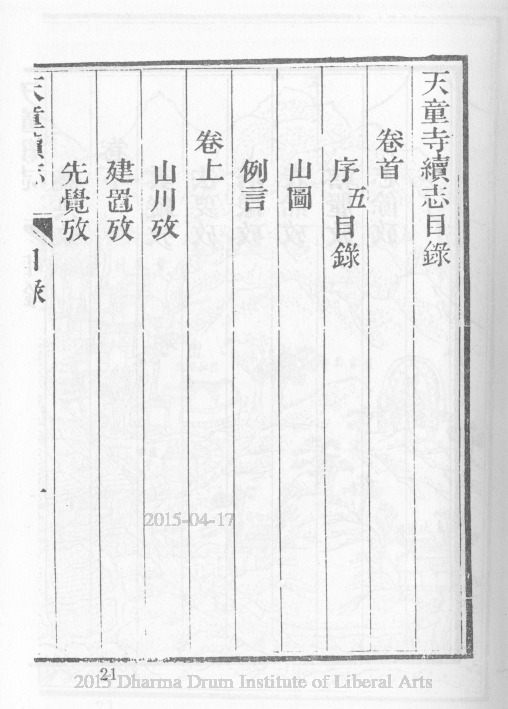 天童寺續志目錄
卷首
序五目錄
山圖
例言
卷上
山川攷
建置攷
先覺攷
天童續志
目錄
一
2015-04-17
21
2015 Dharma Drum Institute of Liberal Arts